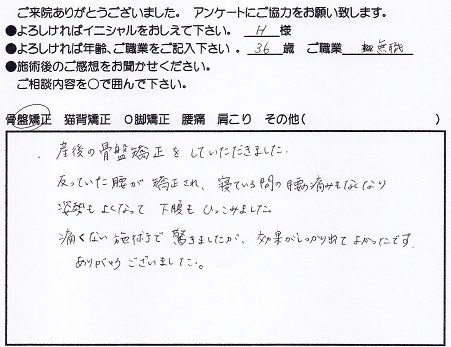 ご来院ありがとうございました。 アンケートにご協力をお願い致します。
●よろしければイニシャルをおしえて下さい。 H 様
●よろしければ年齢、ご職業をご記入下さい。 36 歳 ご職業 無職
●施術後のご感想をお聞かせください。
ご相談内容を〇で囲んで下さい。
骨盤矯正 猫背矯正 O脚矯正 腰痛 肩こり その他( )
産後の骨盤矯正をしていただきました。
反っていた腰が矯正され、寝ている間の腰の痛みもなくなり
姿勢もよくなって 下腹もひっこみました。
痛くない施術で驚きましたが、効果がしっかり出てよかったです。
ありがとうございました。